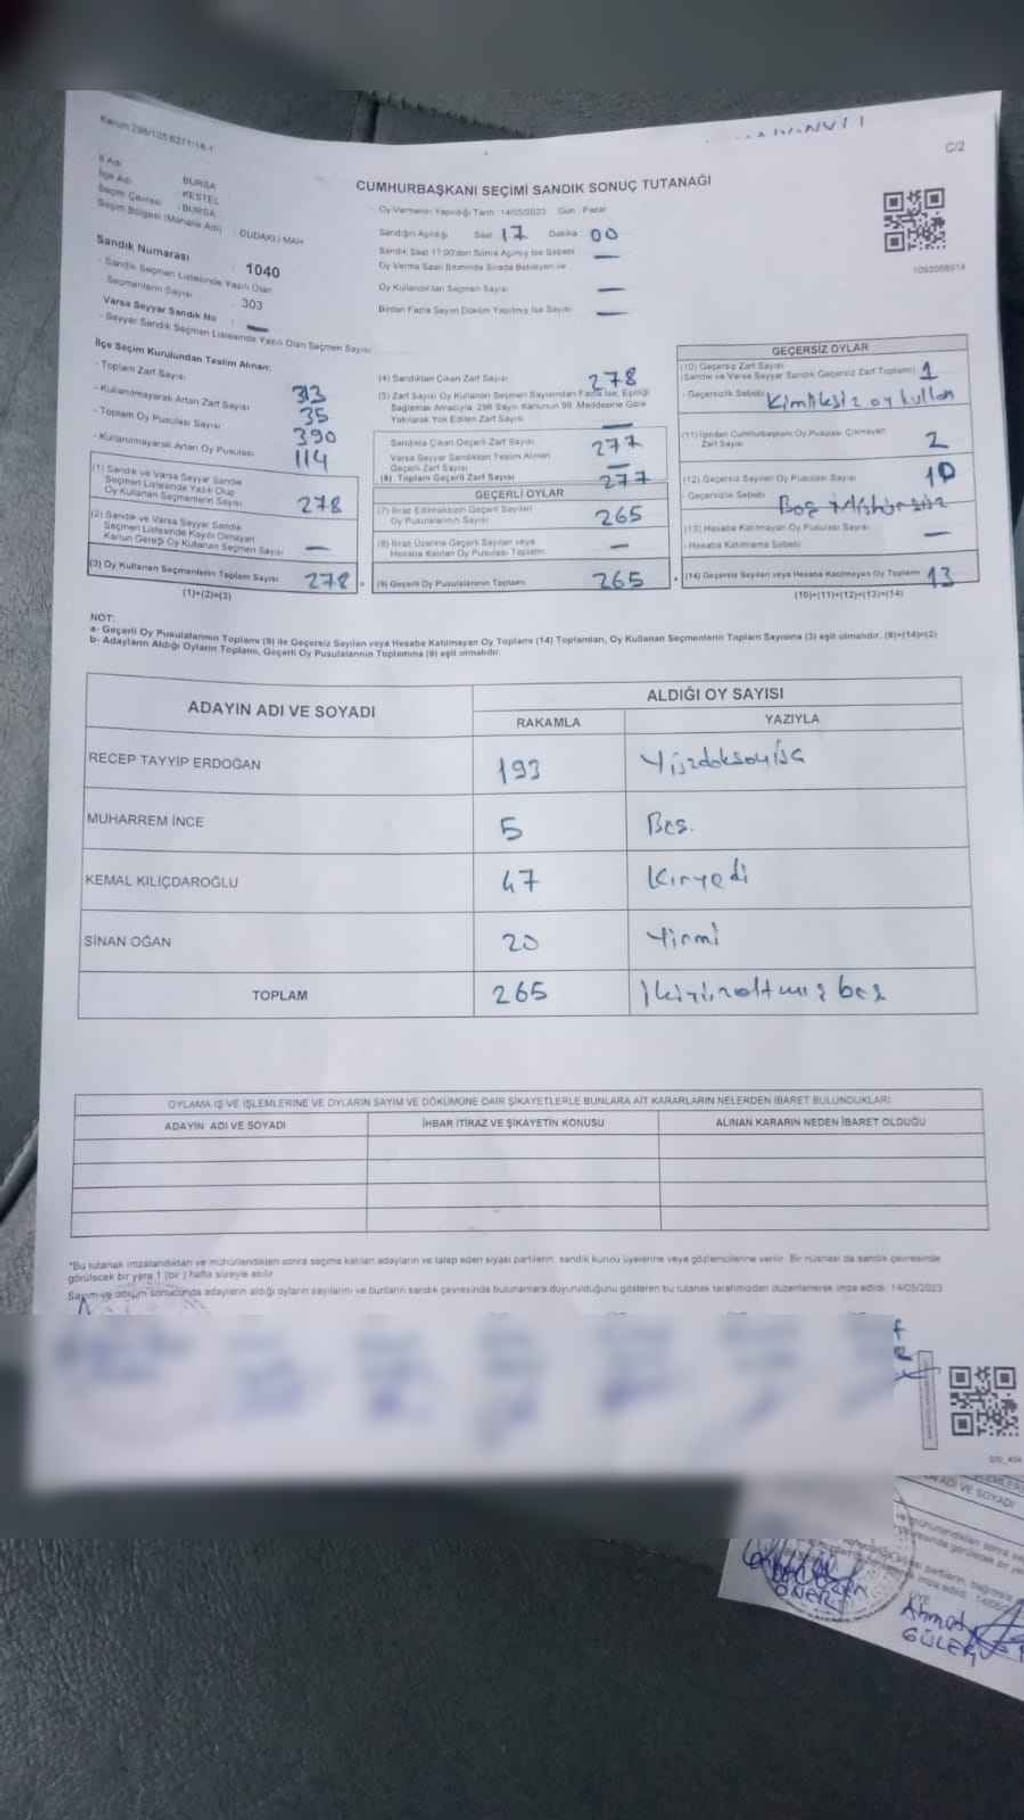 C/2
İl Adı : BURSA
İlçe Adı : KESTEL
Seçim Çevresi : BURSA
Seçim Bölgesi (Mahalle Adı) : DUDAKLI MAH.
CUMHURBAŞKANI SEÇİMİ SANDIK SONUÇ TUTANAĞI
Oy Vermenin Yapıldığı Tarih : 14/05/2023 Gün : Pazar
Sandığın Açıldığı Saat 17 Dakika 00
Oy Kullandırılan Seçmen Sayısı —
Birden Fazla Sayım Döküm Yapılmış İse Sayısı —
Sandık Numarası : 1040
- Sandık Seçmen Listesinde Yazılı Olan Seçmenlerin Sayısı : 303
Varsa Seyyar Sandık No : —
- Seyyar Sandık Seçmen Listesinde Yazılı Olan Seçmen Sayısı
İlçe Seçim Kurulundan Teslim Alınan;
- Toplam Zarf Sayısı 313
- Kullanılmayarak Artan Zarf Sayısı 35
- Toplam Oy Pusulası Sayısı 390
- Kullanılmayarak Artan Oy Pusulası 114
(1) Sandık ve Varsa Seyyar Sandık
Seçmen Listesinde Yazılı Olup
Oy Kullanan Seçmenlerin Sayısı 278
(2) Sandık ve Varsa Seyyar Sandık
Seçmen Listesinde Kayıtlı Olmayan
Kanun Gereği Oy Kullanan Seçmen Sayısı —
(3) Oy Kullanan Seçmenlerin Toplam Sayısı 278
(1)+(2)=(3)
(4) Sandıktan Çıkan Zarf Sayısı 278
(5) Zarf Sayısı Oy Kullanan Seçmen Sayısından Fazla İse, Eşitliği
Sağlamak Amacıyla 298 Sayılı Kanunun 98. Maddesine Göre
Yakılarak Yok Edilen Zarf Sayısı —
Sandıkta Çıkan Geçerli Zarf Sayısı 277
Varsa Seyyar Sandıktan Teslim Alınan
Geçerli Zarf Sayısı —
(6) Toplam Geçerli Zarf Sayısı 277
GEÇERLİ OYLAR
(7) İtiraz Edilmeksizin Geçerli Sayılan
Oy Pusulalarının Sayısı 265
(8) İtiraz Üzerine Geçerli Sayılan veya
Hesaba Katılan Oy Pusulası Toplamı —
(9) Geçerli Oy Pusulalarının Toplamı 265
GEÇERSİZ OYLAR
(10) Geçersiz Zarf Sayısı
(Sandık ve Varsa Seyyar Sandık Geçersiz Zarf Toplamı) 1
- Geçersizlik Sebebi Kimliksiz oy kullan
(11) İçinden Cumhurbaşkanı Oy Pusulası Çıkmayan
Zarf Sayısı 2
(12) Geçersiz Sayılan Oy Pusulası Sayısı 10
- Geçersizlik Sebebi Boş
(13) Hesaba Katılmayan Oy Pusulası Sayısı —
- Hesaba Katılmama Sebebi
(14) Geçersiz Sayılan veya Hesaba Katılmayan Oy Toplamı 13
(10)+(11)+(12)+(13)=(14)
NOT:
a- Geçerli Oy Pusulalarının Toplamı (9) ile Geçersiz Sayılan veya Hesaba Katılmayan Oy Toplamı (14) Toplamları, Oy Kullanan Seçmenlerin Toplam Sayısına (3) eşit olmalıdır. (9)+(14)=(3)
b- Adayların Aldığı Oyların Toplamı, Geçerli Oy Pusulalarının Toplamına (9) eşit olmalıdır.
ADAYIN ADI VE SOYADI ALDIĞI OY SAYISI
RAKAMLA YAZIYLA
RECEP TAYYİP ERDOĞAN 193
MUHARREM İNCE 5 Beş.
KEMAL KILIÇDAROĞLU 47 Kıryedi
SİNAN OĞAN 20 Yirmi
TOPLAM 265 İkiyüzaltmış beş
OYLAMA İŞ VE İŞLEMLERİNE VE OYLARIN SAYIM VE DÖKÜMÜNE DAİR ŞİKAYETLERLE BUNLARA AİT KARARLARIN NELERDEN İBARET BULUNDUKLARI
ADAYIN ADI VE SOYADI İHBAR İTİRAZ VE ŞİKAYETİN KONUSU ALINAN KARARIN NEDEN İBARET OLDUĞU
*Bu tutanak imzalandıktan ve mühürlendikten sonra seçime katılan adayların ve talep eden siyasi partilerin, sandık kurulu üyelerine veya gözlemcilerine verilir. Bir nüshası da sandık çevresinde
görülecek bir yere 1 (bir) hafta süreyle asılır.
Sayım ve döküm sonucunda adayların aldığı oyların sayılarını ve bunların sandık çevresinde bulunanlara duyurulduğunu gösteren bu tutanak tarafımızdan düzenlenerek imza edildi. 14/05/2023
ADI VE SOYADI
Ahmet
GÜLER